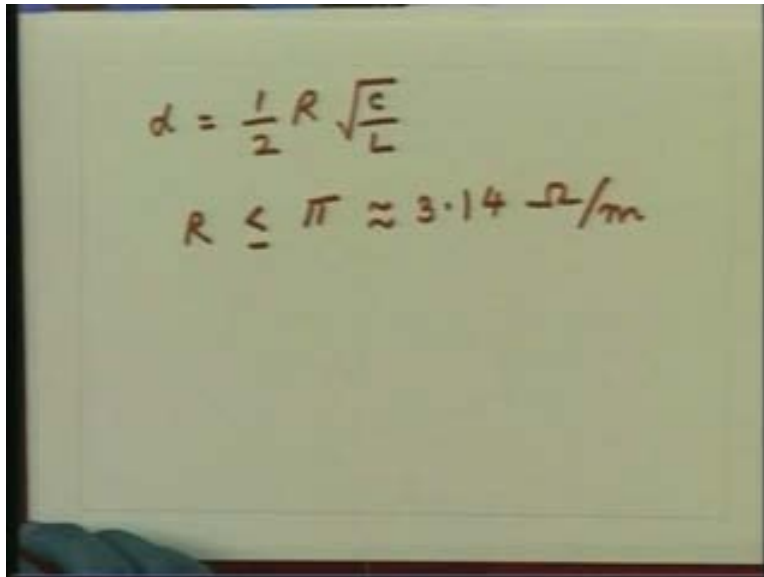 α = 1/2 R √(C/L)
R ≤ π ≈ 3.14 Ω/m